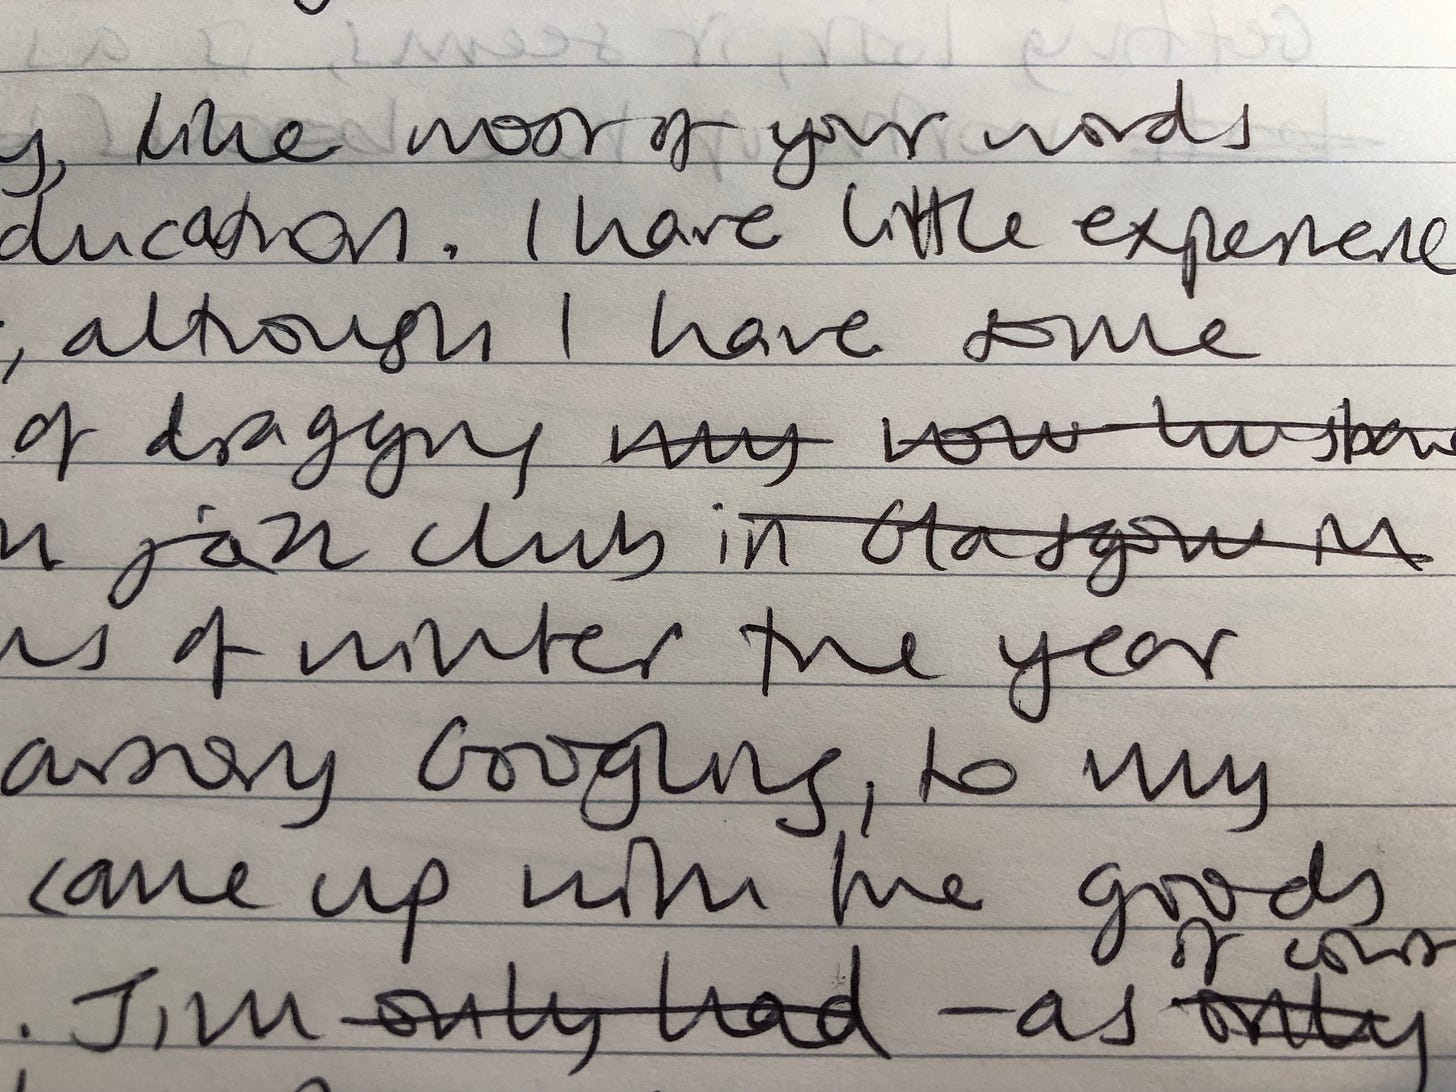 y, like most of your words
ducation. I have little experience
, although I have some
of dragging my now husban
jazz club in Glasgow in
of winter the year
Googling, to my
came up with the goods
of cour
. Jim only had - as only